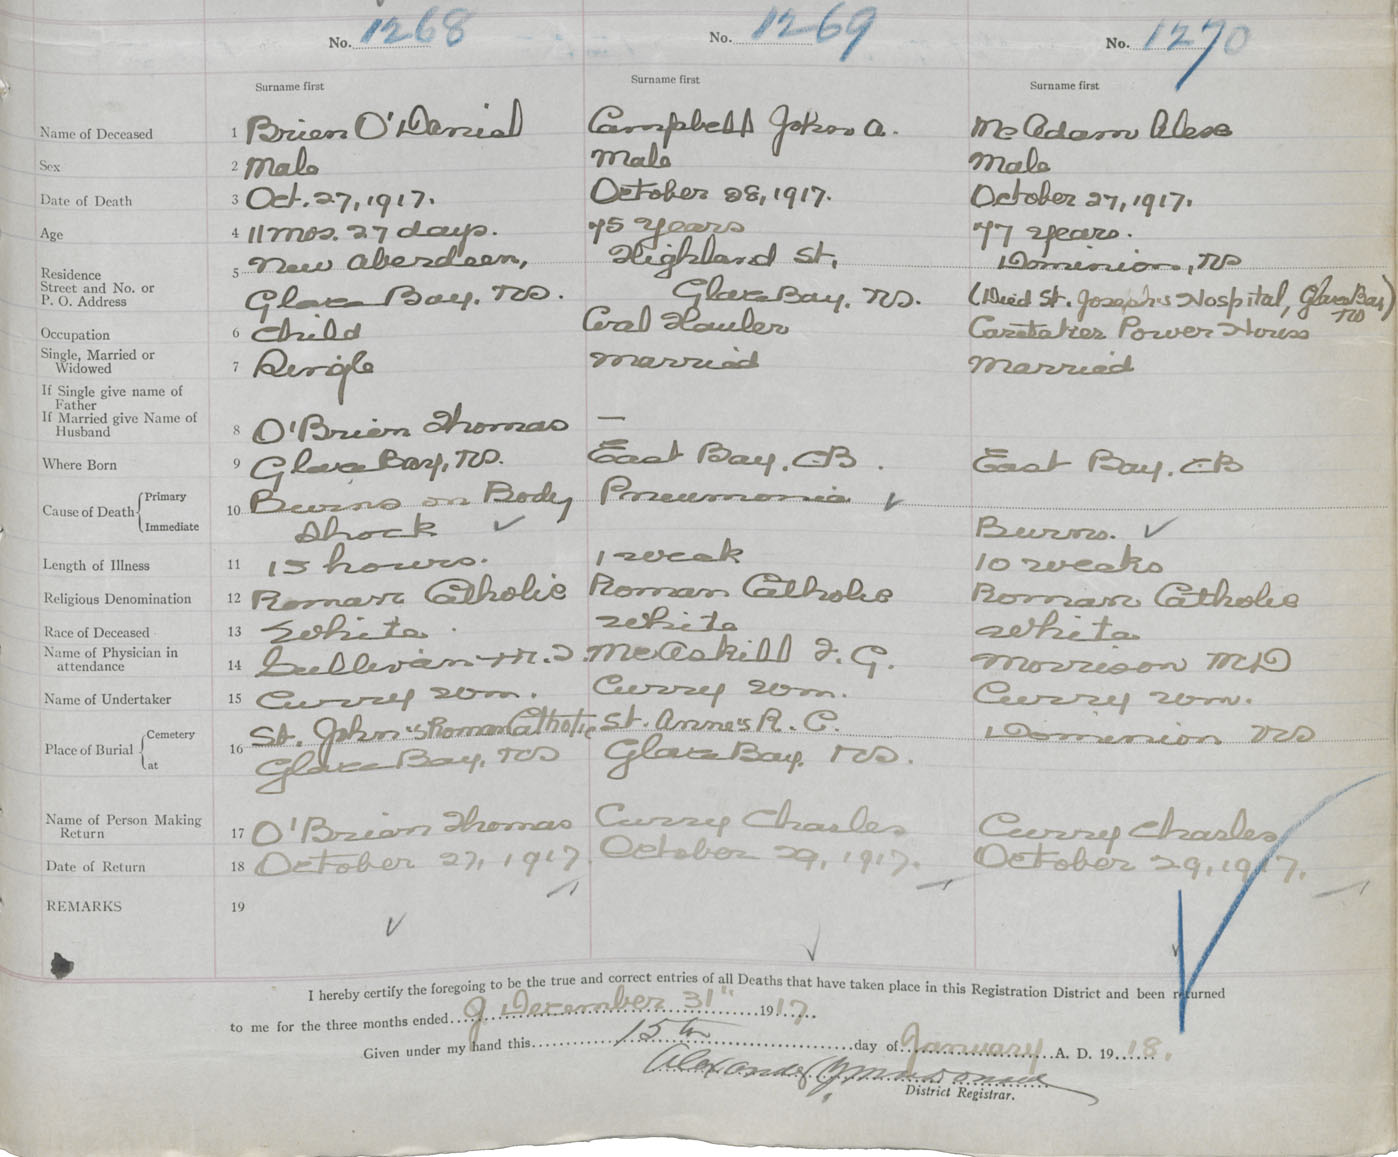 No. 1268 No. 1269 No. 1270
Surname first Surname first Surname first
Name of Deceased 1 Brien O'Daniel Campbell John A. McAdam Alexe
Sex 2 Male Male Male
Date of Death 3 Oct. 27, 1917. October 28, 1917. October 27, 1917.
Age 4 11 mos. 27 days. 75 years 77 years.
Residence
Street and No. or
P. O. Address
5 New Aberdeen, Highland St, Dominion, NS
Glace Bay, NS. Glace Bay, NS. (Died St. Joseph's Hospital, Glace Bay)
NS
Occupation 6 Child Coal Hauler Caretaker Power House
Single, Married or
Widowed 7 Single Married Married
If Single give name of
Father
If Married give Name of
Husband 8 O'Brien Thomas —
Where Born 9 Glace Bay, NS. East Bay, CB. East Bay, CB
Cause of Death Primary
Immediate
10 Burns on Body Pneumonia
Shock Burns.
Length of Illness 11 15 hours. 1 week 10 weeks
Religious Denomination 12 Roman Catholic Roman Catholic Roman Catholic
Race of Deceased 13 White White White
Name of Physician in
attendance 14 Sullivan M.D. McAskill F. G. Morrison MD
Name of Undertaker 15 Curry Wm. Curry Wm. Curry Wm.
Place of Burial Cemetery
at
16 St. John's Roman Catholic St. Anne's R. C. Dominion NS
Glace Bay, NS Glace Bay, NS.
Name of Person Making
Return 17 O'Brian Thomas Curry Charles Curry Charles
Date of Return 18 October 27, 1917 October 29, 1917. October 29, 1917.
REMARKS 19
I hereby certify the foregoing to be the true and correct entries of all Deaths that have taken place in this Registration District and been returned
to me for the three months ended December 31" 1917
Given under my hand this 15th day of January A. D. 1918.
Alexander
District Registrar.